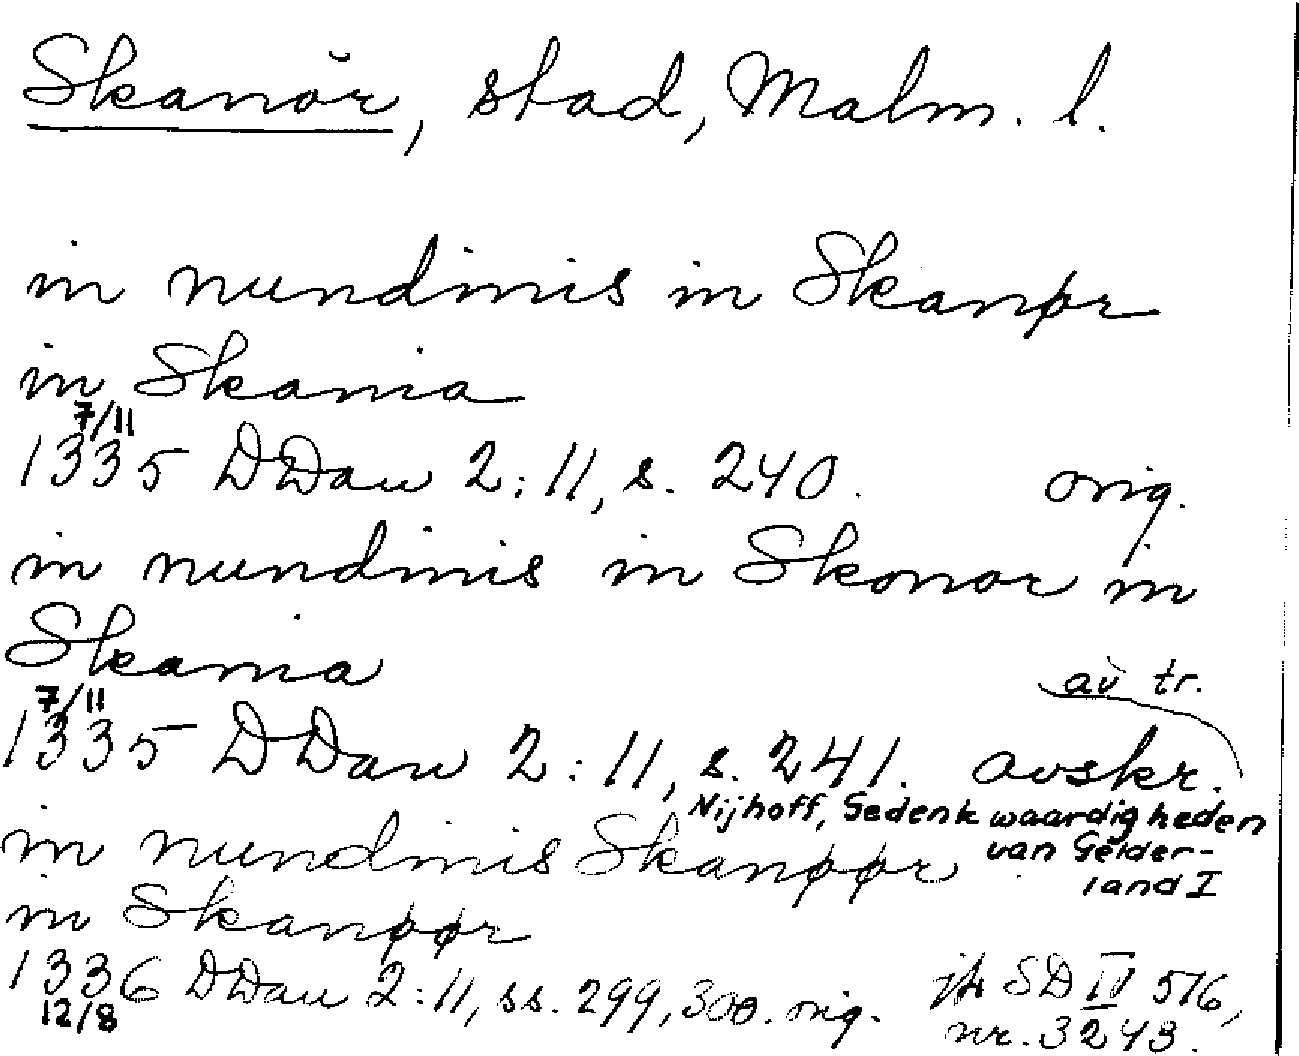 Skanör, stad, Malm. l.
in nundinis in Skanør
in Skania
7/11
1335 DDan 2:11, s. 240. orig.
in nundinis in Skonor in
Skania
av tr.
7/11
1335 DDan 2:11, s. 241. avskr.
Nijhoff, Gedenkwaardigheden
in nundinis Skanøør van Gelder-
land I
in Skanøør
1336 DDan 2:11, ss. 299, 300. orig. jfr SD IV 516,
12/8 nr. 3243.